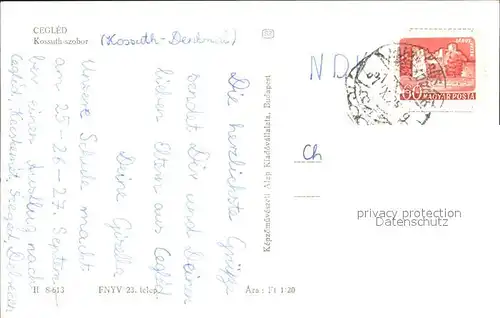 CEGLÉD
Kossuth-szobor
(Kossuth-Denkmal)
Die herzlichste Grüße
sendet Dir und Deinen
lieben Eltern aus Cegléd
Deine Gizella
Unsere Schule macht
am 25-26-27. Septem-
ber einen Ausflug nach
Cegléd, Kecskemét, Szeged, Debrecen.
Képzőművészeti Alap Kiadóvállalata, Budapest
NDK
Ch
60 MAGYAR POSTA
privacy protection
watermark
II 8-613
FNYV 23. telep.
Ára: Ft 1·20